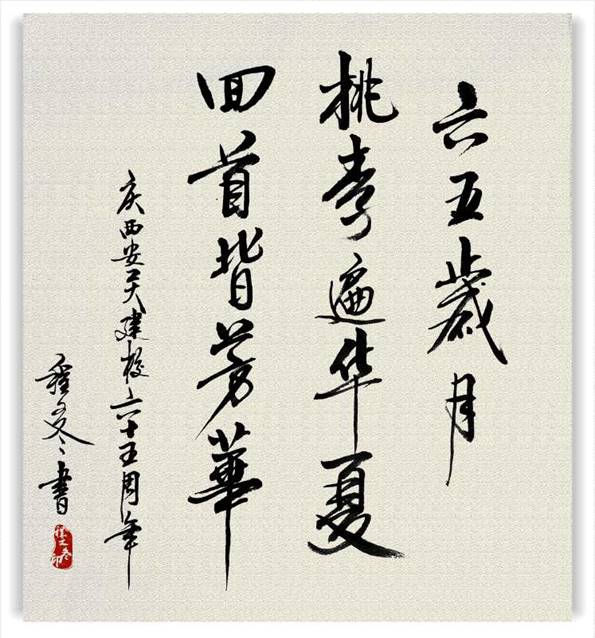 六五歲月
桃李遍华夏
回首皆芳華
庆西安工大建校六十五周年
冬書